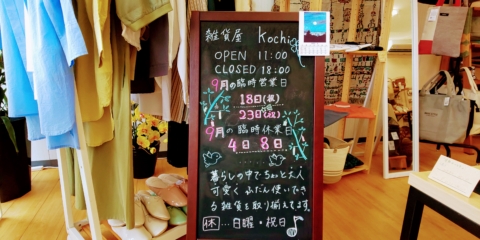 雑貨屋 Kochi
OPEN 11:00
CLOSED 18:00
9月の臨時営業日
18日(祝)
23日(祝)
9月の臨時休業日
4日 8日
暮らしの中でちょっと大人
可愛く ふだん使いできる
雑貨を取り揃えてます。
休…日曜・祝日